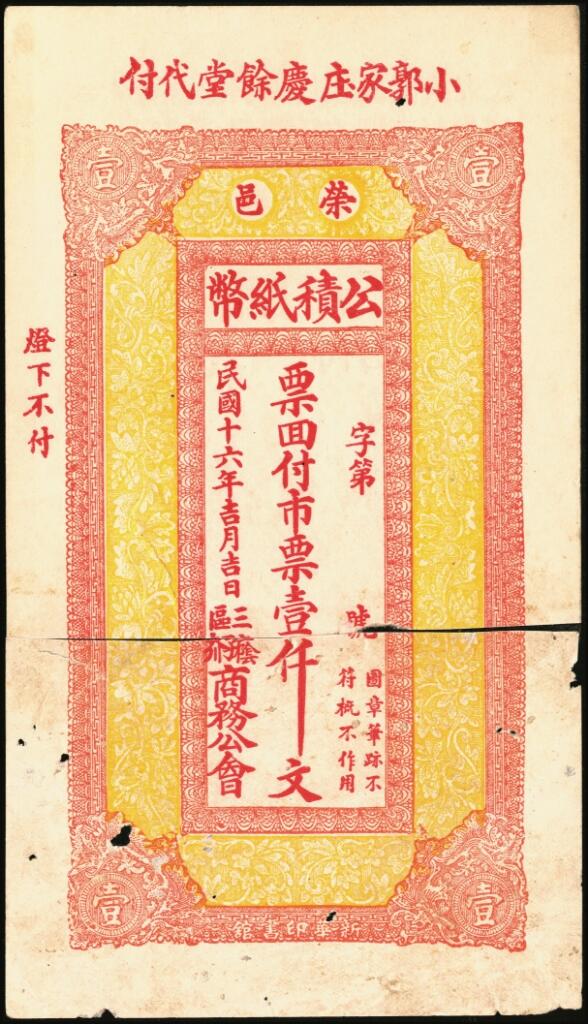 小郭家庄慶餘堂代付
壹
壹
榮邑
公積紙幣
字第 號
圖章筆跡不
符概不作用
票囬付市票壹仟文
民國十六年吉月吉日
三
區
商務公會
燈下不付
壹
壹
新華印書館